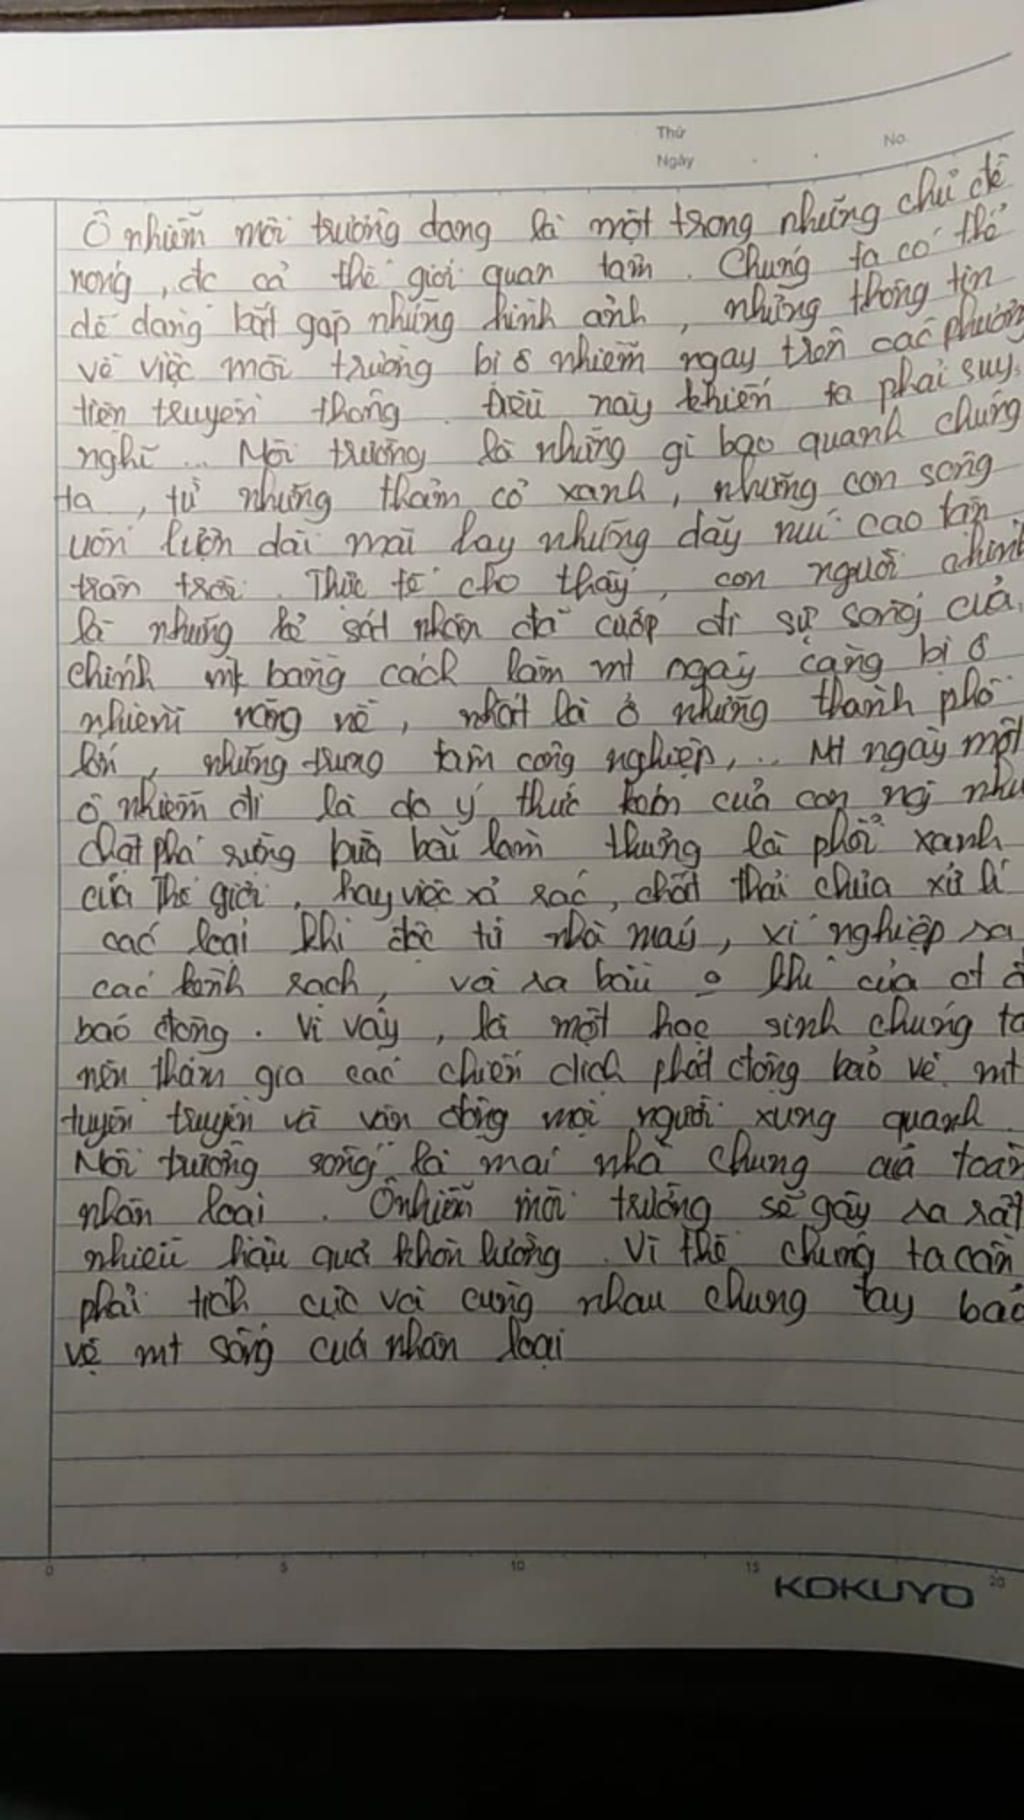 Thứ
Ngày
No.
Ô nhiễm môi trường đang là một trong những chủ đề
nóng, đc cả thế giới quan tâm. Chúng ta có thể
dễ dàng bắt gặp những hình ảnh, những thông tin
về việc môi trường bị ô nhiễm ngay trên các phương
tiện truyền thông. Điều này khiến ta phải suy
nghĩ... Môi trường là những gì bao quanh chúng
ta, từ những thảm cỏ xanh, những con sông
uốn lượn dài mãi hay những dãy núi cao tận
trân trời. Thực tế cho thấy, con người chính
là những kẻ sát nhân đã cướp đi sự sống của
chính mk bằng cách làm mt ngày càng bị ô
nhiễm nặng nề, nhất là ở những thành phố
lớn, những trung tâm công nghiệp,... Mt ngày một
ô nhiễm đi là do ý thức kém của con ng như
chặt phá rừng bừa bãi làm thủng lá phổi xanh
của Thế giới, hay việc xả rác, chất thải chưa xử lí
các loại khí độc từ nhà máy, xí nghiệp ra
các kênh rạch, và ra bầu khí của
báo động. Vì vậy, là một học sinh chúng ta
nên tham gia các chiến dịch phát động bảo vệ mt
tuyên truyền và vận động mọi người xung quanh.
Môi trường sống là mái nhà chung của toàn
nhân loại. Ô nhiễm môi trường sẽ gây ra rất
nhiều hậu quả khôn lường. Vì thế chúng ta cần
phải tích cực và cùng nhau chung tay bảo
vệ mt sống của nhân loại
0 5 10 15 20
KOKUYO